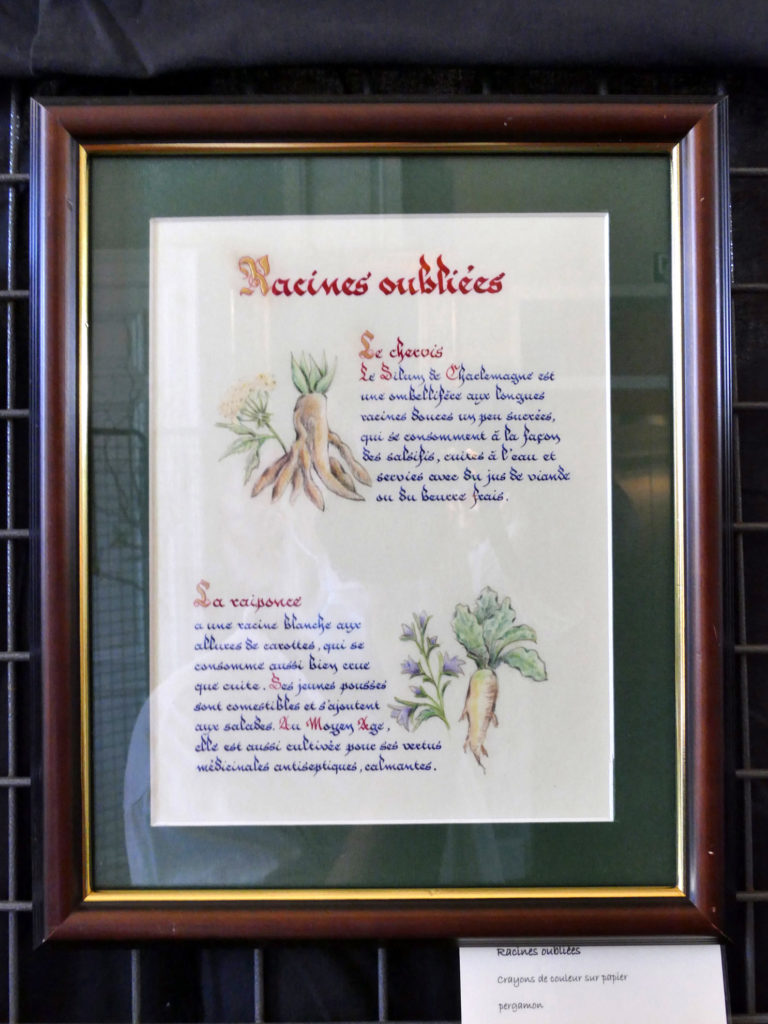 Racines oubliées
Le chervis
Le Silum de Charlemagne est
une ombellifère aux longues
racines douces un peu sucrées,
qui se consomment à la façon
des salsifis, cuites à l'eau et
servies avec du jus de viande
ou du beurre frais.
La raiponce
a une racine blanche aux
allures de carottes, qui se
consomme aussi bien crue
que cuite. Ses jeunes pousses
sont comestibles et s'ajoutent
aux salades. Au Moyen Age,
elle est aussi cultivée pour ses vertus
médicinales antiseptiques, calmantes.
Racines oubliées
Crayons de couleur sur papier
pergamon